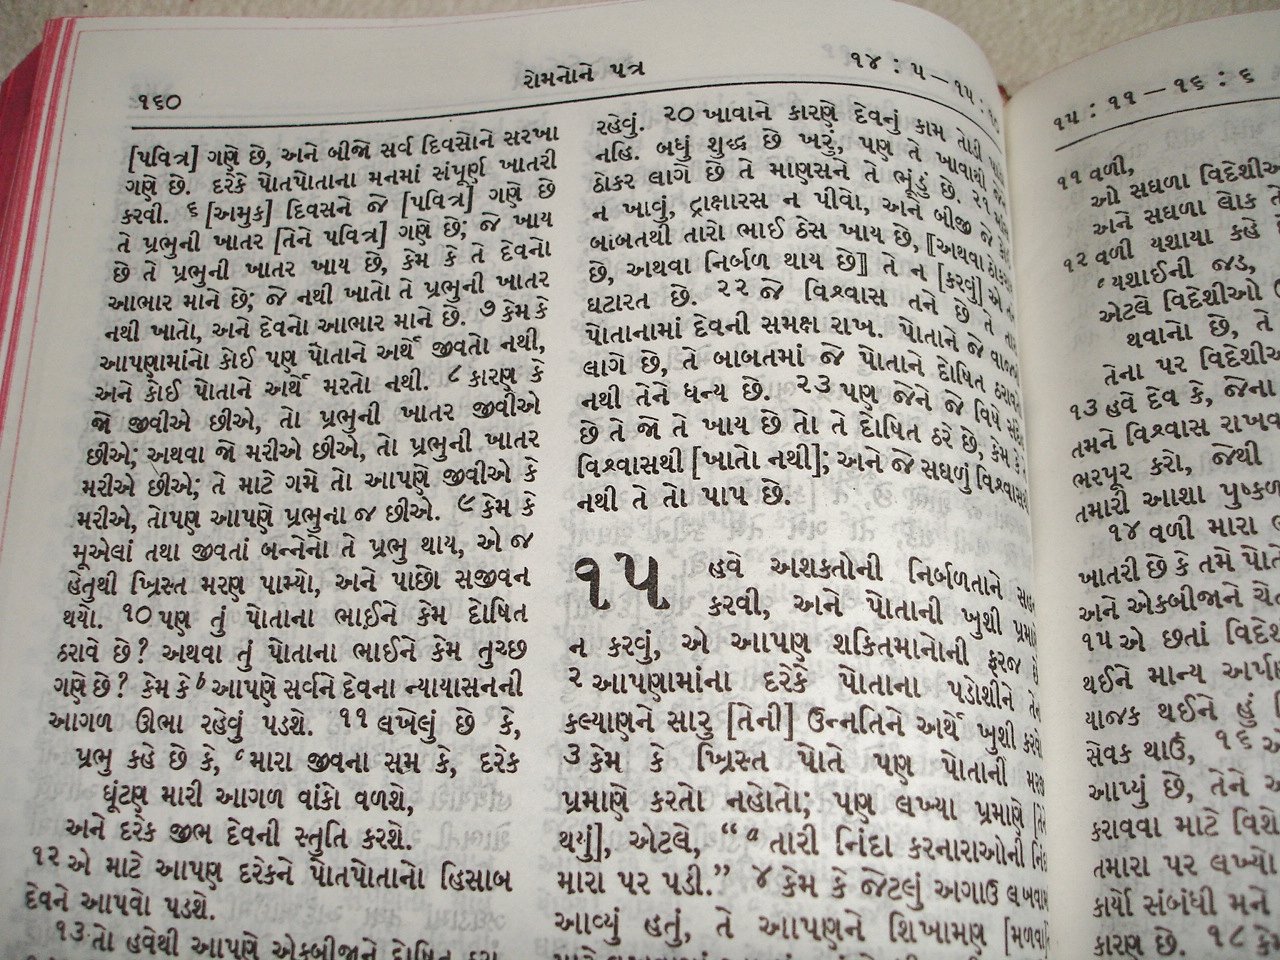 ૧૬૦
રોમનોને પત્ર
૧૪ : ૫ – ૧૫ :
[પવિત્ર] ગણે છે, અને બીજો સર્વ દિવસોને સરખા
ગણે છે. દરેકે પોતપોતાના મનમાં સંપૂર્ણ ખાતરી
કરવી. ૬ [અમુક] દિવસને જે [પવિત્ર] ગણે છે
તે પ્રભુની ખાતર [તેને પવિત્ર] ગણે છે; જે ખાય
છે તે પ્રભુની ખાતર ખાય છે, કેમ કે તે દેવનો
આભાર માને છે; જે નથી ખાતો તે પ્રભુની ખાતર
નથી ખાતો, અને દેવનો આભાર માને છે. ૭ કેમ કે
આપણામાંનો કોઈ પણ પોતાને અર્થે જીવતો નથી,
અને કોઈ પોતાને અર્થે મરતો નથી. ૮ કારણ કે
જો જીવીએ છીએ, તો પ્રભુની ખાતર જીવીએ
છીએ; અથવા જો મરીએ છીએ, તો પ્રભુની ખાતર
મરીએ છીએ; તે માટે ગમે તો આપણે જીવીએ કે
મરીએ, તોપણ આપણે પ્રભુના જ છીએ. ૯ કેમ કે
મૂએલાં તથા જીવતાં બન્નેનો તે પ્રભુ થાય, એ જ
હેતુથી ખ્રિસ્ત મરણ પામ્યો, અને પાછો સજીવન
થયો. ૧૦ પણ તું પોતાના ભાઈને કેમ દોષિત
ઠરાવે છે? અથવા તું પોતાના ભાઈને કેમ તુચ્છ
ગણે છે? કેમ કે b આપણે સર્વને દેવના ન્યાયાસનની
આગળ ઊભા રહેવું પડશે. ૧૧ લખેલું છે કે,
પ્રભુ કહે છે કે, c મારા જીવના સમ કે, દરેક
ઘૂંટણ મારી આગળ વાંકો વળશે,
અને દરેક જીભ દેવની સ્તુતિ કરશે.
૧૨ એ માટે આપણ દરેકને પોતપોતાનો હિસાબ
દેવને આપવો પડશે.
૧૩ તો હવેથી આપણે એકબીજાને દોષિત
રહેવું. ૨૦ ખાવાને કારણે દેવનું કામ તોડી
નહિ. બધું શુદ્ધ છે ખરું, પણ તે ખાવાથી
ઠોકર લાગે છે તે માણસને તે ભૂંડું છે. ૨૧
ન ખાવું, દ્રાક્ષારસ ન પીવો, અને બીજી જે
બાબતથી તારો ભાઈ ઠેસ ખાય છે, [અથવા ઠોકર
છે, અથવા નિર્બળ થાય છે] તે ન [કરવું] એ
ઘટારત છે. ૨૨ જે વિશ્વાસ તને છે તે
પોતાનામાં દેવની સમક્ષ રાખ. પોતાને જે વાજબી
લાગે છે, તે બાબતમાં જે પોતાને દોષિત
નથી તેને ધન્ય છે. ૨૩ પણ જેને જે વિષે
છે તે જો તે ખાય છે તો તે દોષિત ઠરે છે, કેમ કે
વિશ્વાસથી [ખાતો નથી]; અને જે સઘળું
નથી તે તો પાપ છે.
૧૫ હવે અશક્તોની નિર્બળતાને
કરવી, અને પોતાની ખુશી
ન કરવું, એ આપણ શક્તિમાનોની ફરજ
૨ આપણામાંના દરેકે પોતાના પડોશીને
કલ્યાણને સારુ [તેની] ઉન્નતિને અર્થે ખુશી
૩ કેમ કે ખ્રિસ્ત પોતે પણ પોતાની
પ્રમાણે કરતો નહોતો; પણ લખ્યા પ્રમાણે
થયું], એટલે, “ a તારી નિંદા કરનારાઓની
મારા પર પડી.” ૪ કેમ કે જેટલું અગાઉ
આવ્યું હતું, તે આપણને શિખામણ
૧૫ : ૧૧ – ૧૬ : ૬
૧૧ વળી,
ઓ સઘળા
અને સઘળા લોક
૧૨ વળી યશાયા કહે
c યશાઈની જડ,
એટલે વિદેશીઓ
થવાનો છે,
તેના પર
૧૩ હવે દેવ કે, જેના
તમને વિશ્વાસ
ભરપૂર કરો, જેથી
તમારી આશા
૧૪ વળી મારા
ખાતરી છે કે તમે
અને એકબીજાને
૧૫ એ છતાં
થઈને માન્ય
યાજક થઈને હું
સેવક થાઉં, ૧૬
આપ્યું છે, તેને
કરાવવા માટે
તમારા પર લખ્યો
કાર્યો સંબંધી મને
કારણ છે. ૧૮